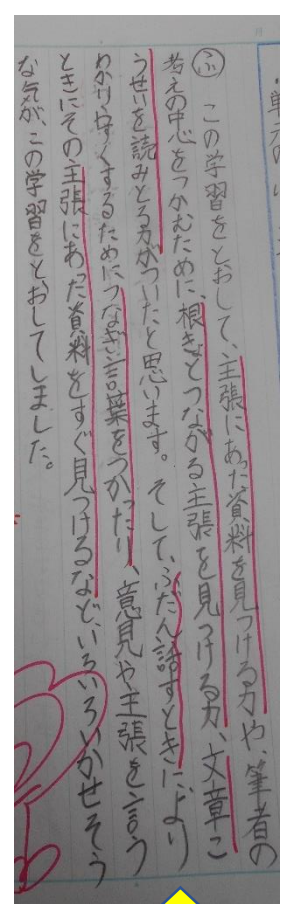 単元の
ふ この学習をとおして、主張にあった資料を見つける力や、筆者の
考えの中心をつかむために、根きょとつながる主張を見つける力、文章こ
うせいを読みとる力がついたと思います。そして、ふだん話すときに、より
わかりやすくするためにつなぎ言葉をつかったり、意見や主張を言う
ときにその主張にあった資料をすぐ見つけるなど、いろいろいかせそう
な気が、この学習をとおしてしました。